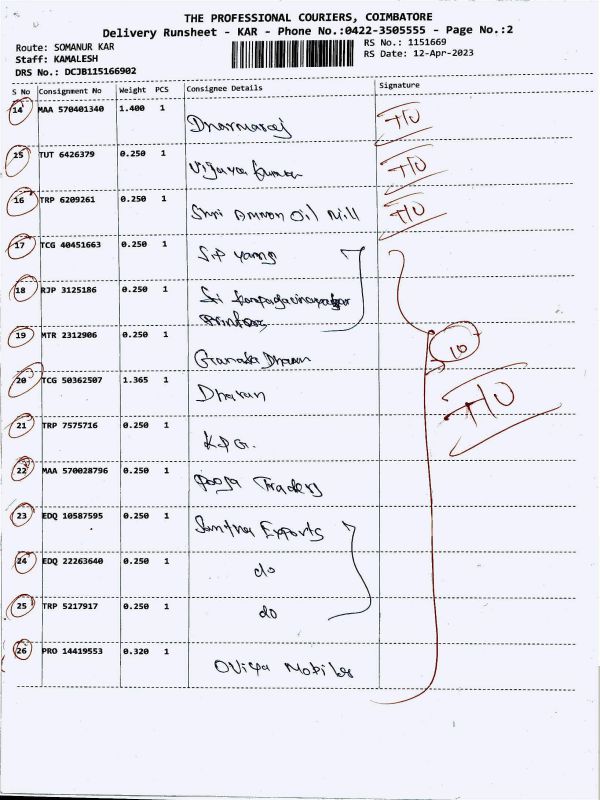 THE PROFESSIONAL COURIERS, COIMBATORE
Delivery Runsheet - KAR - Phone No.:0422-3505555 - Page No.:2
Route: SOMANUR KAR
RS No.: 1151669
Staff: KAMALESH
RS Date: 12-Apr-2023
DRS No.: DCJB115166902
S No Consignment No Weight PCS Consignee Details Signature
14 MAA 570401340 1.400 1 Dharmaraj T/U
15 TUT 6426379 0.250 1 Vijaya Kumar T/U
16 TRP 6209261 0.250 1 Shri Amman Oil Mill T/U
17 TCG 40451663 0.250 1 S.P yarng
18 RJP 3125186 0.250 1 Sri
Printers
19 MTR 2312906 0.250 1 Dharan
10
20 TCG 50362507 1.365 1 Dharan T/U
21 TRP 7575716 0.250 1 K.P.G.
22 MAA 570028796 0.250 1 Pooja Traders
23 EDQ 10587595 0.250 1 Exports
24 EDQ 22263640 0.250 1 do
25 TRP 5217917 0.250 1 do
26 PRO 14419553 0.320 1 Mobiles